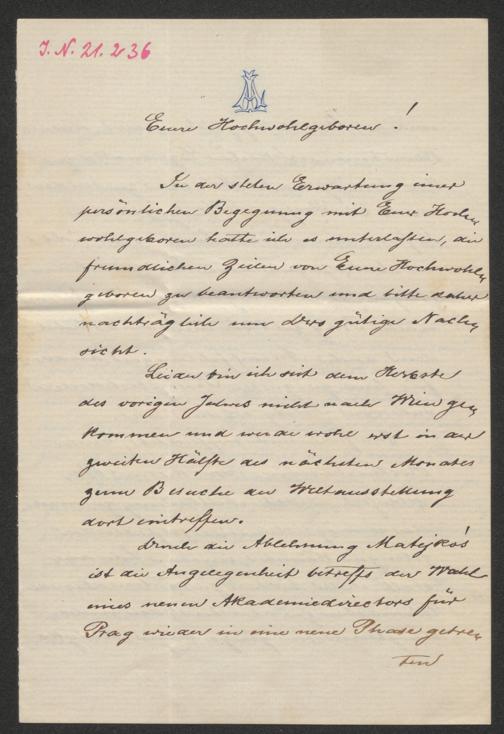 J. N. 21.236
AL
Euer Hochwohlgeboren!
In der steten Erwartung einer
persönlichen Begegnung mit Euer Hoch-
wohlgeboren hatte ich es unterlassen, die
freundlichen Zeilen von Euer Hochwohl-
geboren zu beantworten und bitte daher
nachträglich um Ders gütige Nach-
sicht.
Leider bin ich seit dem Herbste
des vorigen Jahres nicht nach Wien ge-
kommen und werde wohl erst in der
zweiten Hälfte des nächsten Monates
zum Besuche der Weltausstellung
dort eintreffen.
Durch die Ablehnung Matejko's
ist die Angelegenheit betreffs der Wahl
eines neuen Akademiedirectors für
Prag wieder in eine neue Phase getre-
ten